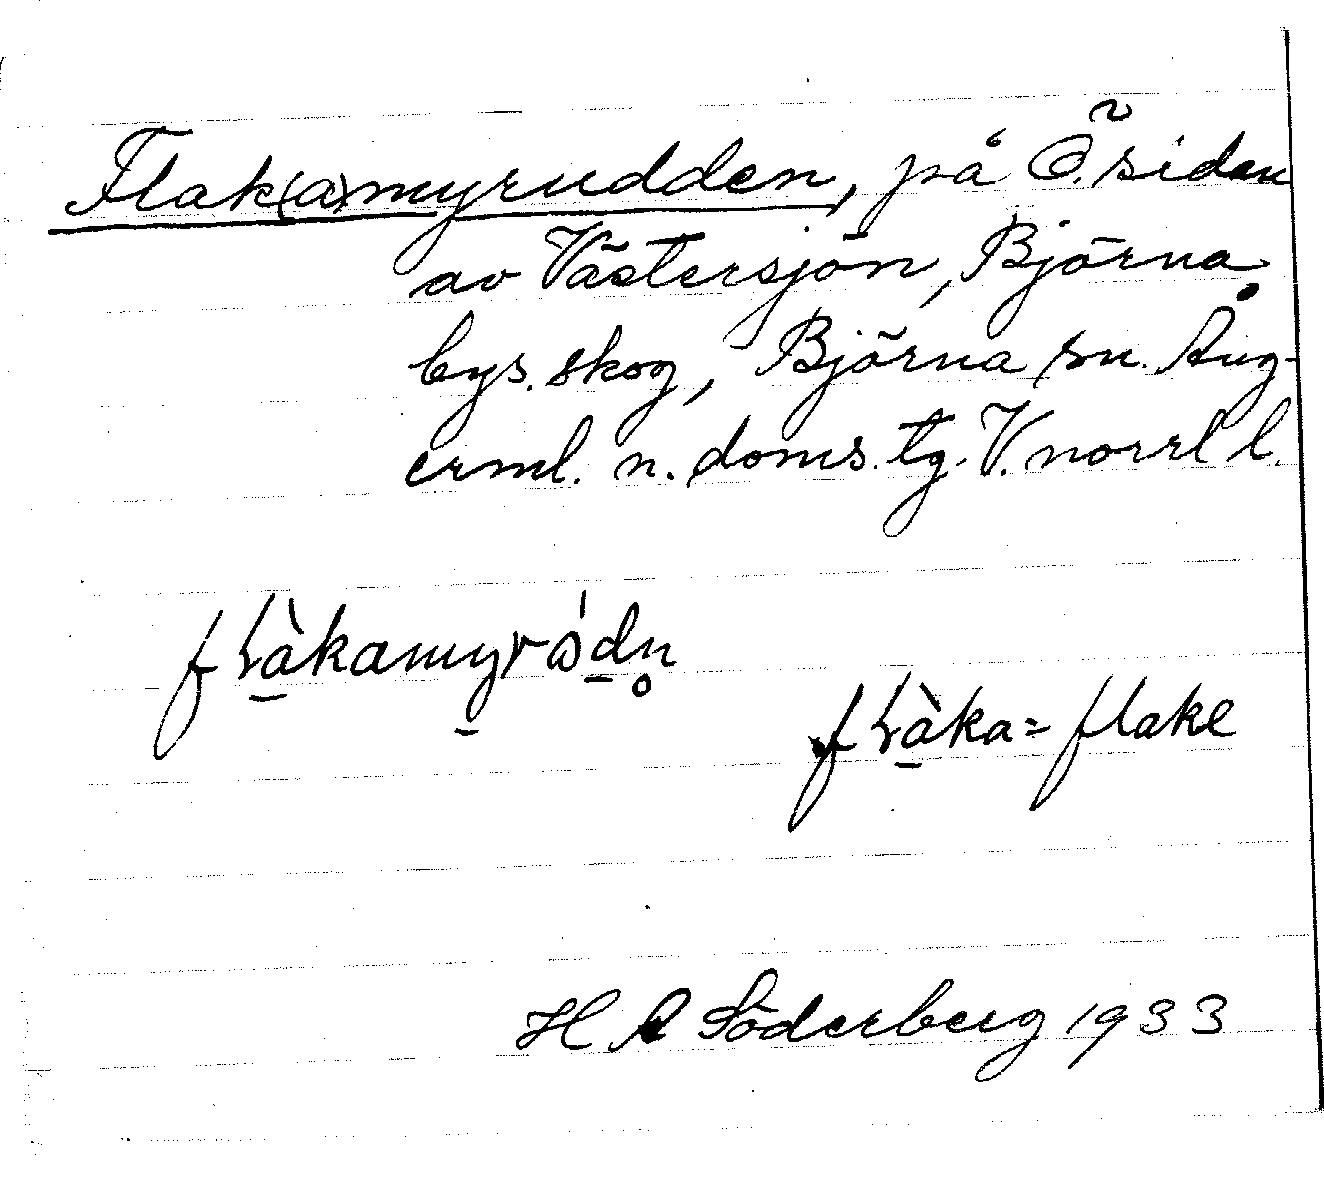 Flak(a)myrudden, på Ö. sidan
av Västersjön, Björna
bys. skog, Björna sn. Ång-
erml. n. doms. tg. V. norrl l.
fɽàkamyrǿdn̥
fɽàka = flake
H A Söderberg 1933